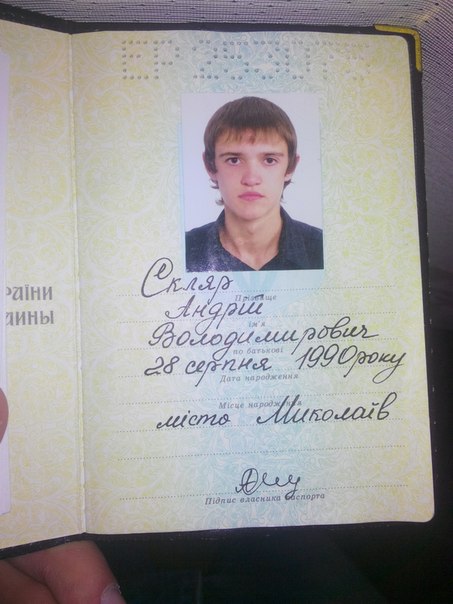 раїни
аины
Скляр
Прізвище
Андрій
ім'я
Володимирович
по батькові
28 серпня 1990 року
Дата народження
Місце народження
місто Миколаїв
Підпис власника паспорта